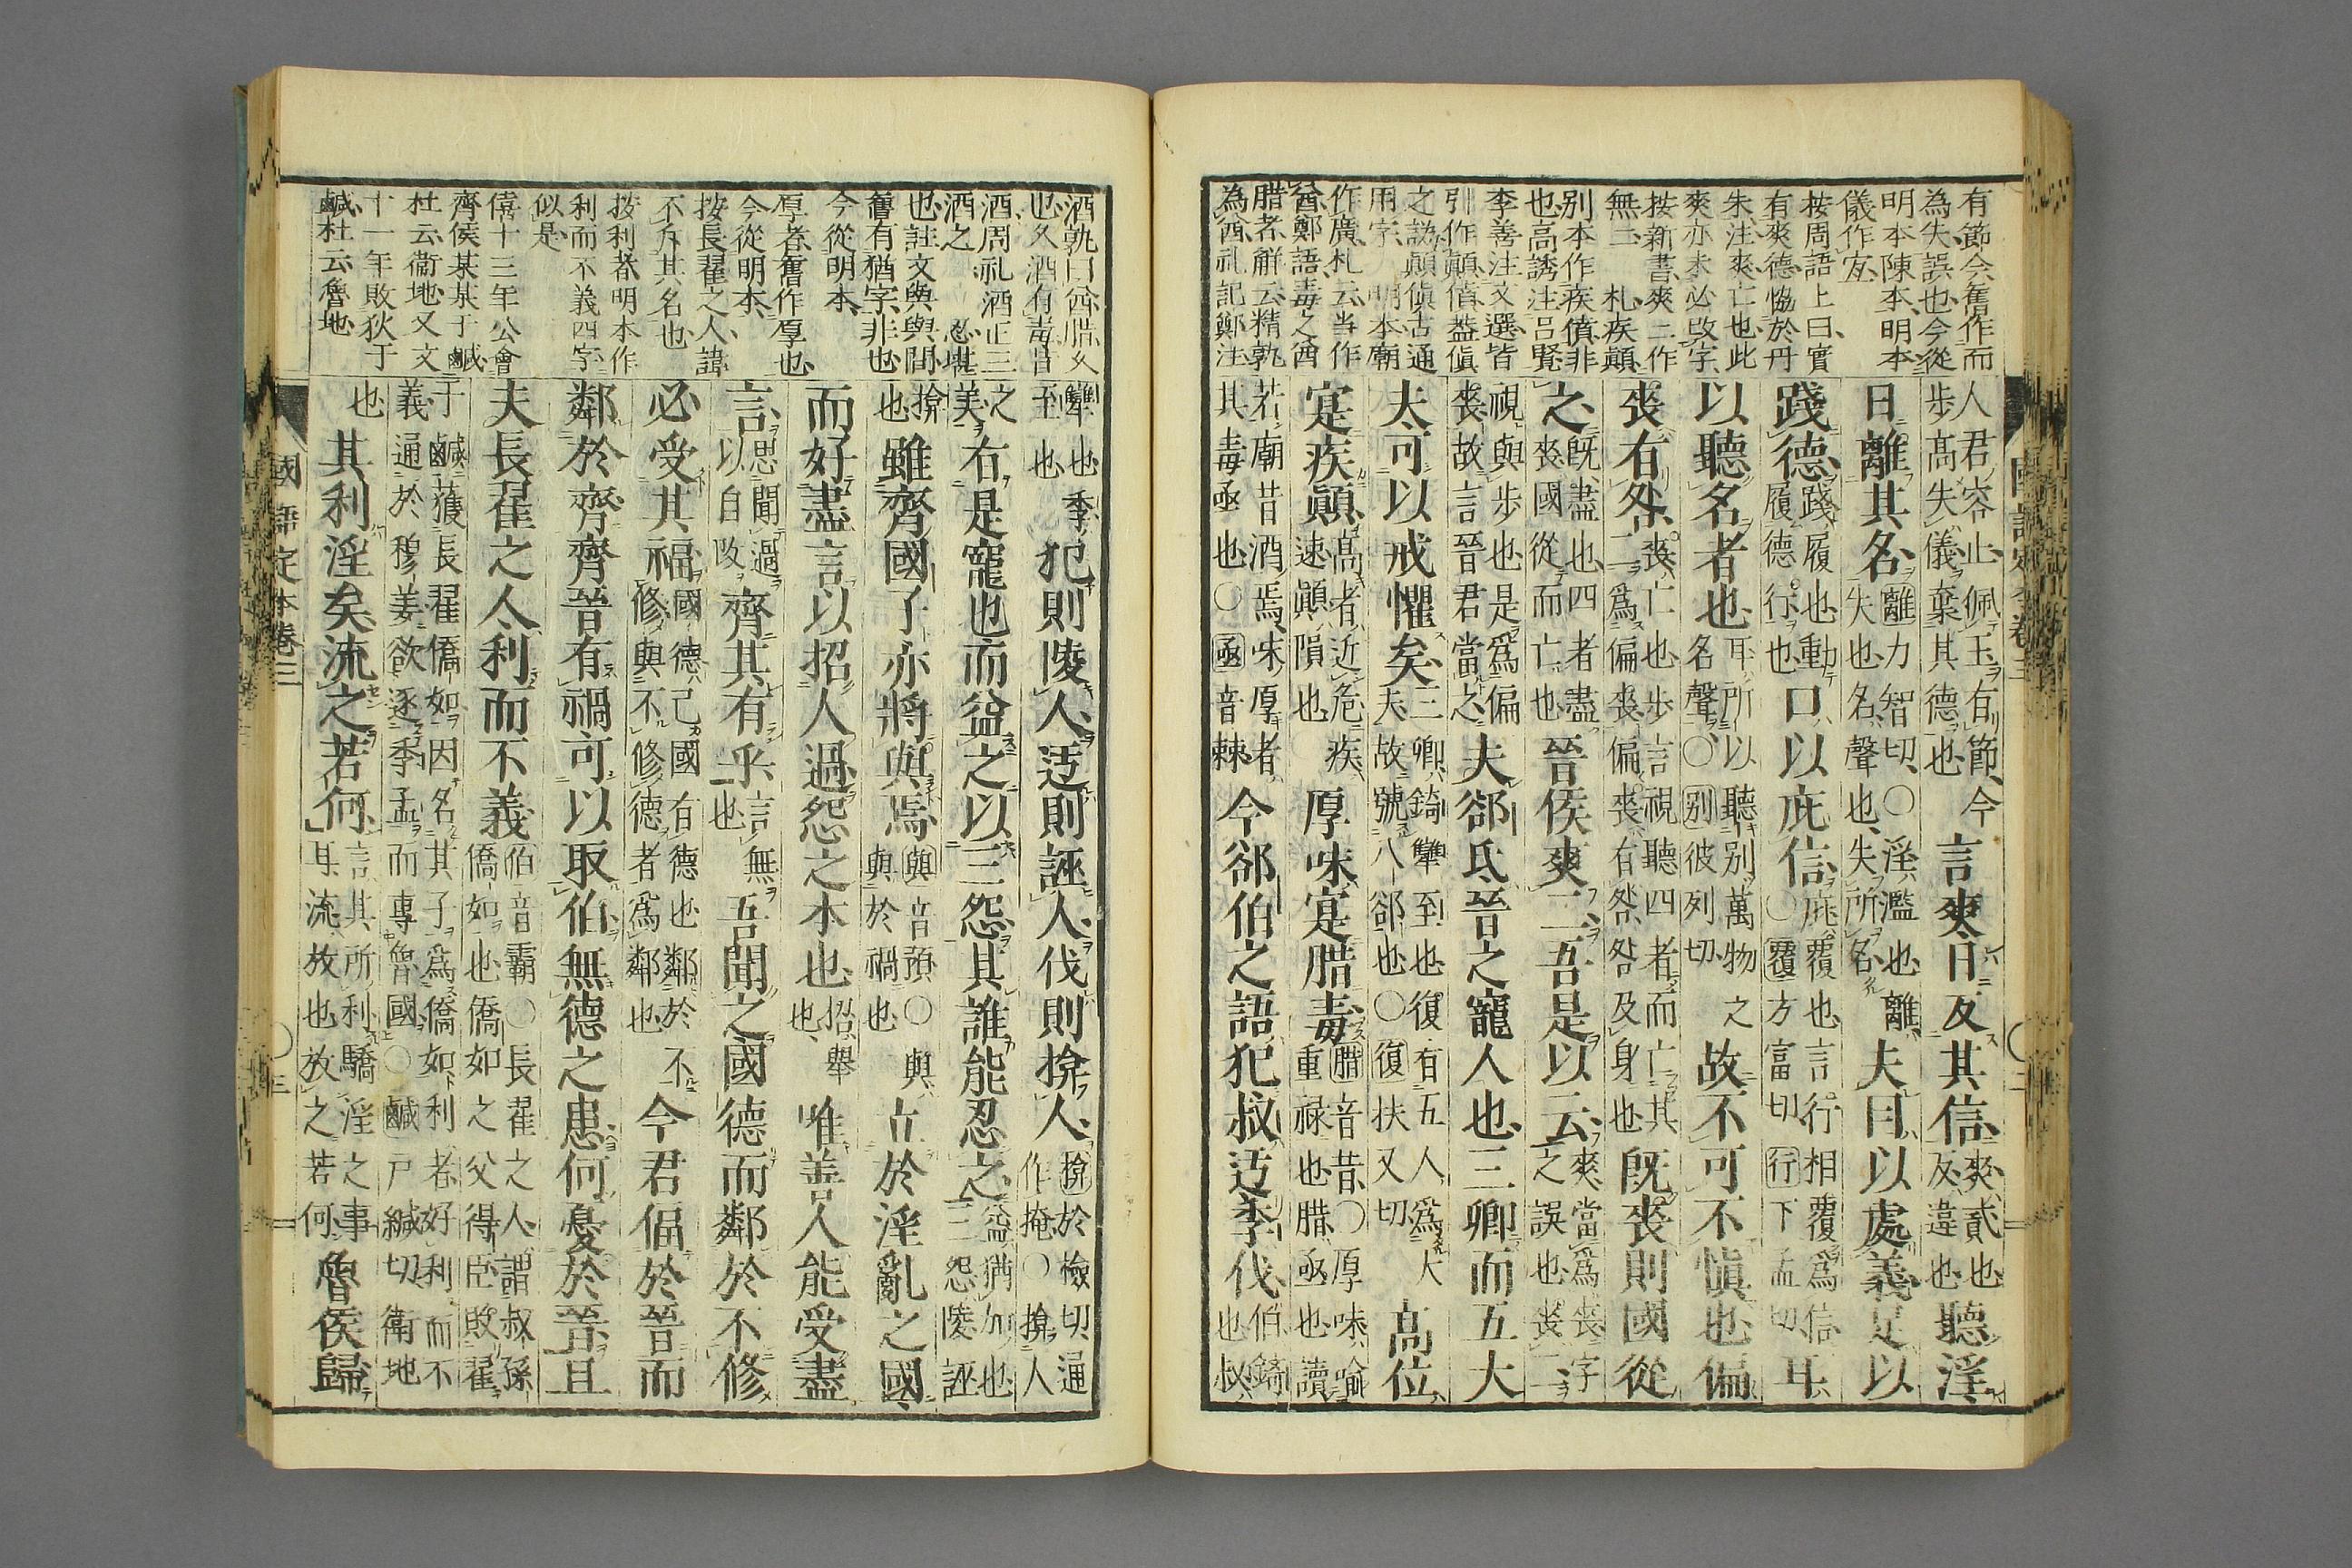 有節今舊作而
為失誤也今從
明本陳本明本
儀作宐
按周語上曰實
有爽德恊於丹
朱注爽亡也此
爽亦未必改字
按新書爽二作
無二　札疾顛
别本作疾僨非
也高誘注呂覽
李善注文選皆
引作顛僨葢傎
之訛顛傎古通
用字　明本廟
作廣札云当作
酋鄭語毒之酋
腊者觧云精孰
為酋礼記鄭注
人君容止佩玉有節今
步髙失儀棄其德也
言爽日反其信
爽貳也
反違也
聽淫
日離其名
離力智切○淫濫也離
失也名聲也失所名
夫目以處義足以
踐德
踐履也動
履德行也
口以庇信
庇覆也言行相覆爲信
○覆方富切行下孟切
耳
以聽名者也
耳所以聽别萬物之
名聲○别彼列切
故不可不愼也偏
喪有咎
喪亡也步言視聽四者而亡其
二爲偏喪偏喪有咎咎及身也
既喪則國從
之
既盡也四者盡
喪國從而亡也
晉侯爽二吾是以云
爽當爲喪字
之誤也喪二
視與步也是爲偏
喪故言晉君當之
夫郤氏晉之寵人也三卿而五大
夫可以戒懼矣
三卿錡犫至也復有五人爲大
夫故號八郤也○復扶又切
髙位
寔疾顛
髙者近危疾
速顛隕也
厚味寔腊毒
腊音昔○厚味喻
重禄也腊亟也讀
若廟昔酒焉味厚者
其毒亟也○亟音棘
今郤伯之語犯叔迃季伐
伯錡
也叔
酒孰曰酋腊久
也久酒有毒旹
酒周礼酒正三
酒之　忍堪
也註文與與間
舊有猶字非也
今從明本
厚者舊作厚也
今從明本
按長翟之人諱
不斥其名也
按利者明本作
利而不義四字
似是
僖十三年公會
齊侯某某于鹹
杜云衞地又文
十一年敗狄于
鹹杜云魯地
犫也
至也
季犯則陵人迃則誣人伐則揜人
揜於檢切通
作掩○揜人
之
美
有是寵也而益之以三怨其誰能忍之
益猶加也
三怨陵誣
揜
也
雖齊國子亦將與焉
與音預○與
與於禍也
立於淫亂之國
而好盡言以招人過怨之本也
招舉
也
唯善人能受盡
言
思聞過
以自改
齊其有乎
言無
也
吾聞之國德而鄰於不修
必受其福
國德己國有德也鄰於不
修與不修德者爲鄰也
今君偪於晉而
鄰於齊齊晉有禍可以取伯無德之患何憂於晉且
夫長翟之人利而不義
伯音霸○長翟之人謂叔孫
僑如也僑如之父得臣敗翟
于鹹獲長翟僑如因名其子爲僑如利者好利而不
義通於穆姜欲逐季孟而專魯國○鹹戸緘切衛地
也
其利淫矣流之若何
言其所利驕淫之事
耳流放也放之若何
魯侯歸
國語定本卷三
○三